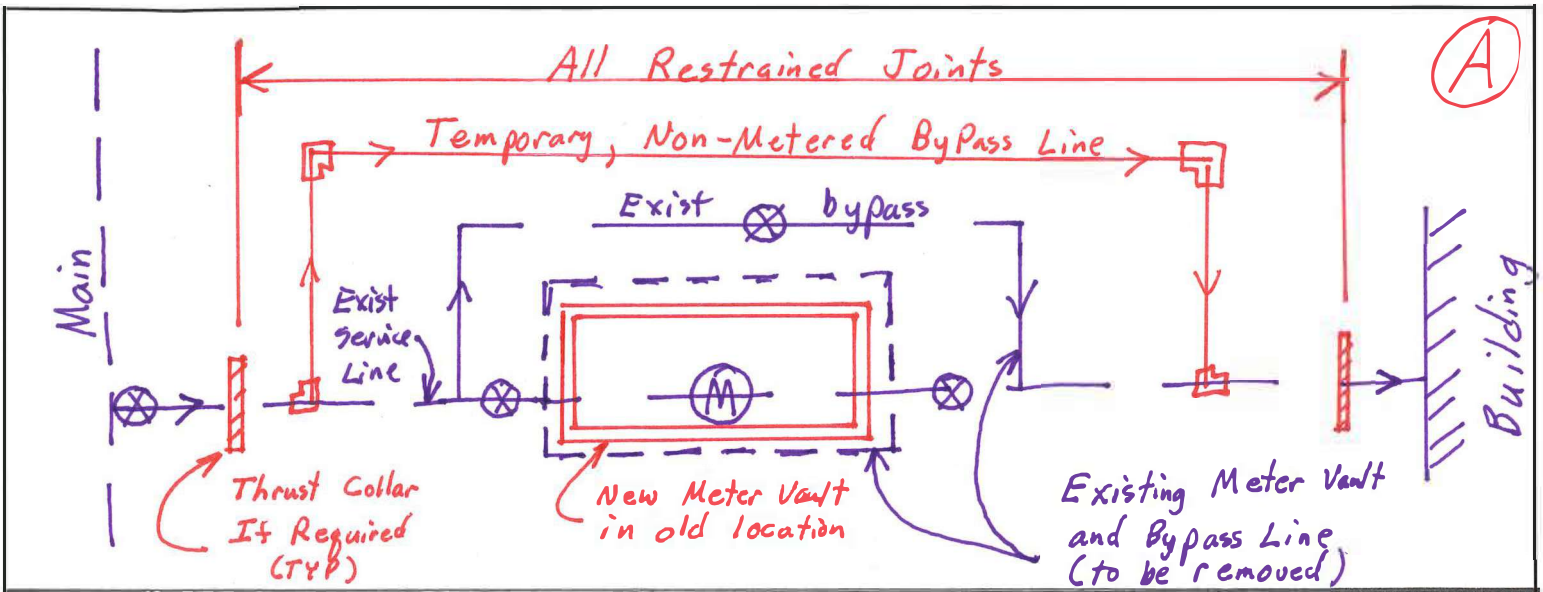 All Restrained Joints
A
Temporary, Non-Metered ByPass Line
Exist bypass
Main
Exist
Service
Line
M
Building
Thrust Collar
If Required
(TYP)
New Meter Vault
in old location
Existing Meter Vault
and Bypass Line
(to be removed)